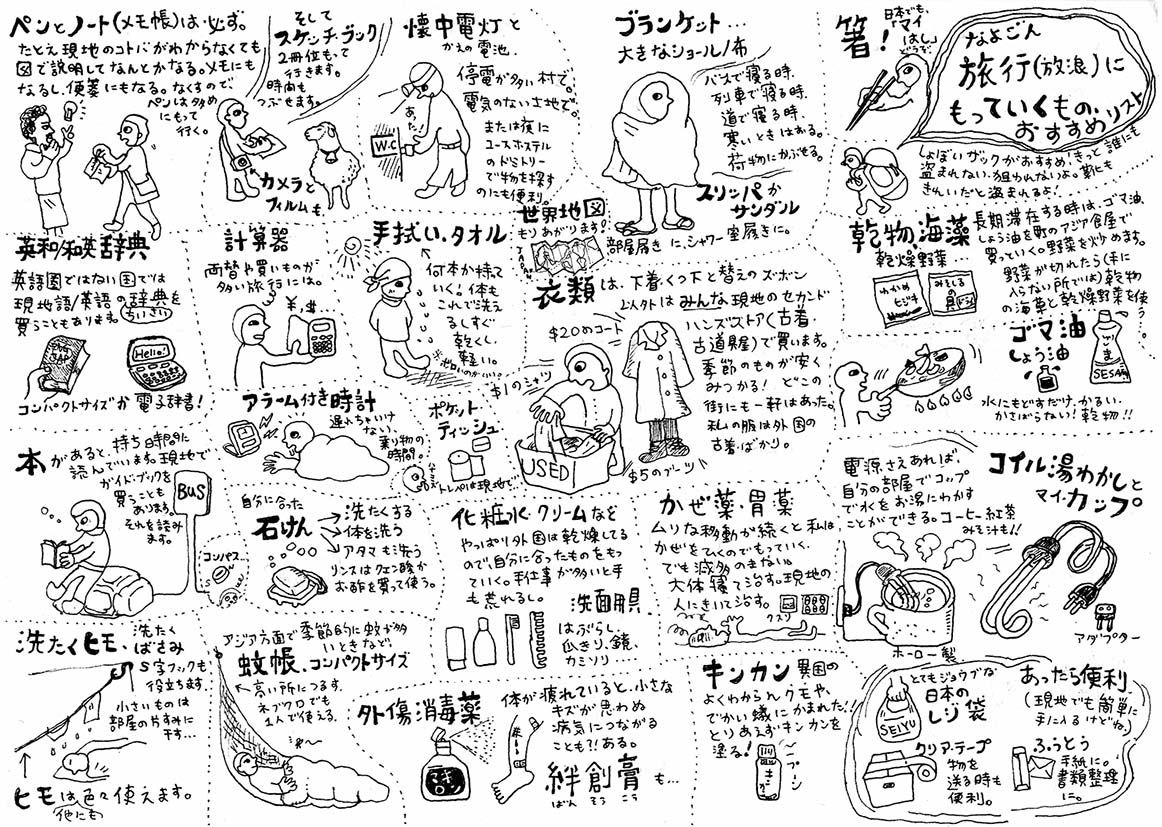 なよごん
旅行(放浪)に
もっていくもの、
おすすめリスト
ペンとノート(メモ帳)は必ず。
たとえ現地のコトバがわからなくても
図で説明してなんとかなる。メモにも
なるし、便箋にもなる。なくすので、
ペンは多め
にもって
行く。
そして
スケッチ・ブック
2冊位もって
行きます。
時間も
つぶせます。
カメラと
フィルムも
懐中電灯と
かえの電池。
停電が多い村で。
電気のない土地で。
または夜に
ユースホステル
のドミトリー
で物を探す
のにも便利。
あった
W.C
ブランケット…
大きなショール/布
バスで寝る時、
列車で寝る時、
道で寝る時、
寒いときはおる。
荷物にかぶせる。
スリッパか
サンダル
部屋履きに、シャワー室履きに。
箸!
日本でも、
マイ
はし
どうぞ
しょぼいザックがおすすめ!きっと誰にも
盗まれない、狙われないよ。靴にも
きれいだと盗まれるよ!
英和/和英辞典
英語圏ではない国では
現地語/英語の辞典を
買うこともあります。
ちいさい
Hello!
コンパクトサイズか電子辞書!
計算器
両替や買いものが
多い旅行には。
¥,$…
手拭い、タオル
何本か持て
いく。体も
これで洗え
るしすぐ
乾くし、
軽い。
世界地図
もりあがります!
衣類は、下着・くつ下と替えのズボン
以外はみんな現地のセカンド
ハンズストア(古着・
古道具屋)で買います。
季節のものが安く
みつかる! どこの
街にも一軒はあった。
私の服は外国の
古着ばかり。
$20のコート
$1のシャツ
USED
$5のブーツ
乾物、海藻
乾燥野菜…
長期滞在する時は、ゴマ油、
しょう油を町のアジア食屋で
買っていくの野菜を炒めます。
野菜が切れたら(手に
入らない所では)乾物
の海草と乾燥野菜を使う…
わかめ
ヒジキ
みそしる
の具
ゴマ油
しょう油
ごま
SESAMI
水にもどすだけ、かるい、
かさばらない!乾物!!
アラーム付き時計
遅れちゃいけ
ない、
乗り物の
時間。
ポケット
ティッシュ
トレペは現地で
本があると、待ち時間に
読んでいます。現地で
ガイドブックを
買うことも
あります。
それを読み
ます。
BUS
コンパス
自分に合った
石けん
洗たくする
体を洗う
アタマも洗う
リンスはクエン酸か
お酢を買って使う。
化粧水・クリームなど
やっぱり外国は乾燥してる
ので、自分に合ったものをもっ
ていく。手仕事が多いと手
も荒れるし。
洗面用具
はぶらし、
爪きり、鏡、
カミソリ…
かぜ薬・胃薬
ムリな移動が続くと私は
かぜをひくのでもっていく。
でも滅多のまない。
大体寝て治す。現地の
人にきいて治す。
クスリ
電源さえあれば、
自分の部屋でコップ
で水をお湯にわかす
ことができる。コーヒー紅茶
みそ汁も!!
コイル湯わかしと
マイ・カップ
ホーロー製
アダプター
洗たくヒモ、
洗たく
ばさみ
S字フックも
役立ちます。
小さいものは
部屋のかすみに
干す…
ヒモは色々使えます。
他にも
アジア方面で季節的に蚊が多
いときなど、
蚊帳、コンパクトサイズ
高い所につるす。
ネブクロでも
1人で使える。
外傷消毒薬
マキロン
体が疲れていると、小さな
キズが思わぬ
病気につながる
ことも?!ある。
絆創膏も…
ばん そう こう
キンカン
異国の
よくわからんクモや、
でかい蟻にかまれた!!
とりあえずキンカンを
塗る!
プーン
きんかん
とてもジョウブな
日本の
レジ袋
SEIYU
クリア・テープ
物を
送る時も
便利。
あったら便利
(現地でも簡単に
手に入るけどね。)
ふうとう
手紙に。
書類整理
に。